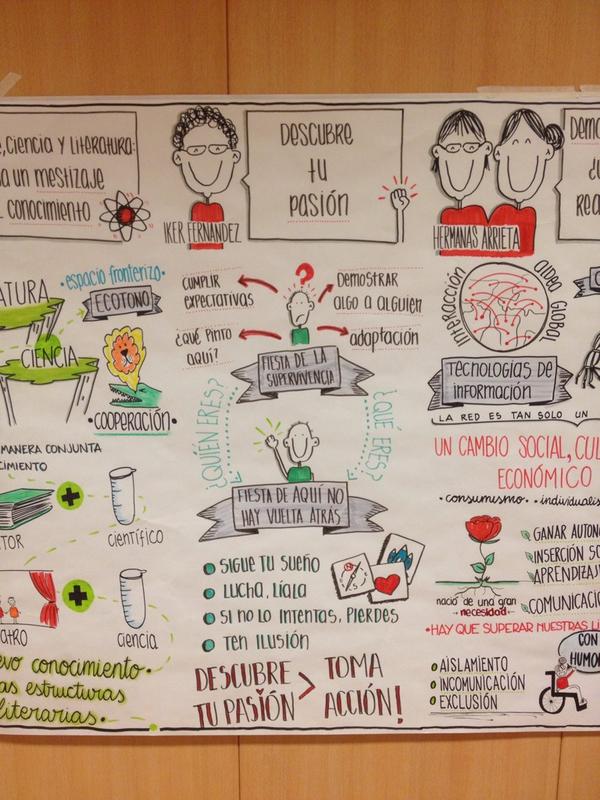 ciencia y Literatura:
un mestizaje
conocimiento
ATURA
espacio fronterizo
ECOTONO
CIENCIA
•cooperación•
MANERA CONJUNTA
CIMIENTO
TOR
científico
ATRO
ciencia
evo conocimiento•
as estructuras
literarias.•
IKER FERNANDEZ
DESCUBRE
tu
pasión
CUMPLIR
expectativas
DEMOSTRAR
algo a alguien
¿qué pinto
aquí?
adaptación
FIESTA DE LA
SUPERVIVENCIA
¿QUIÉN ERES?
¿QUÉ ERES?
FIESTA DE AQUÍ NO
HAY VUELTA ATRÁS
SIGUE TU SUEÑO
LUCHA, LÍALA
SI NO LO INTENTAS, PIERDES
TEN ILUSIÓN
DESCUBRE > TOMA
TU PASIÓN ACCIÓN!
HERMANAS ARRIETA
INTERACCIÓN
ALDEA GLOBAL
TECNOLOGÍAS DE
INFORMACIÓN
LA RED ES TAN SOLO UN
UN CAMBIO SOCIAL, CUL
ECONÓMICO
•consumismo. •individualis
nació de una gran
•necesidad•
GANAR AUTONO
INSERCIÓN SO
APRENDIZAJ
COMUNICACIÓ
•HAY QUE SUPERAR NUESTRAS LÍ
AISLAMIENTO
INCOMUNICACIÓN
EXCLUSIÓN
CON
HUMO